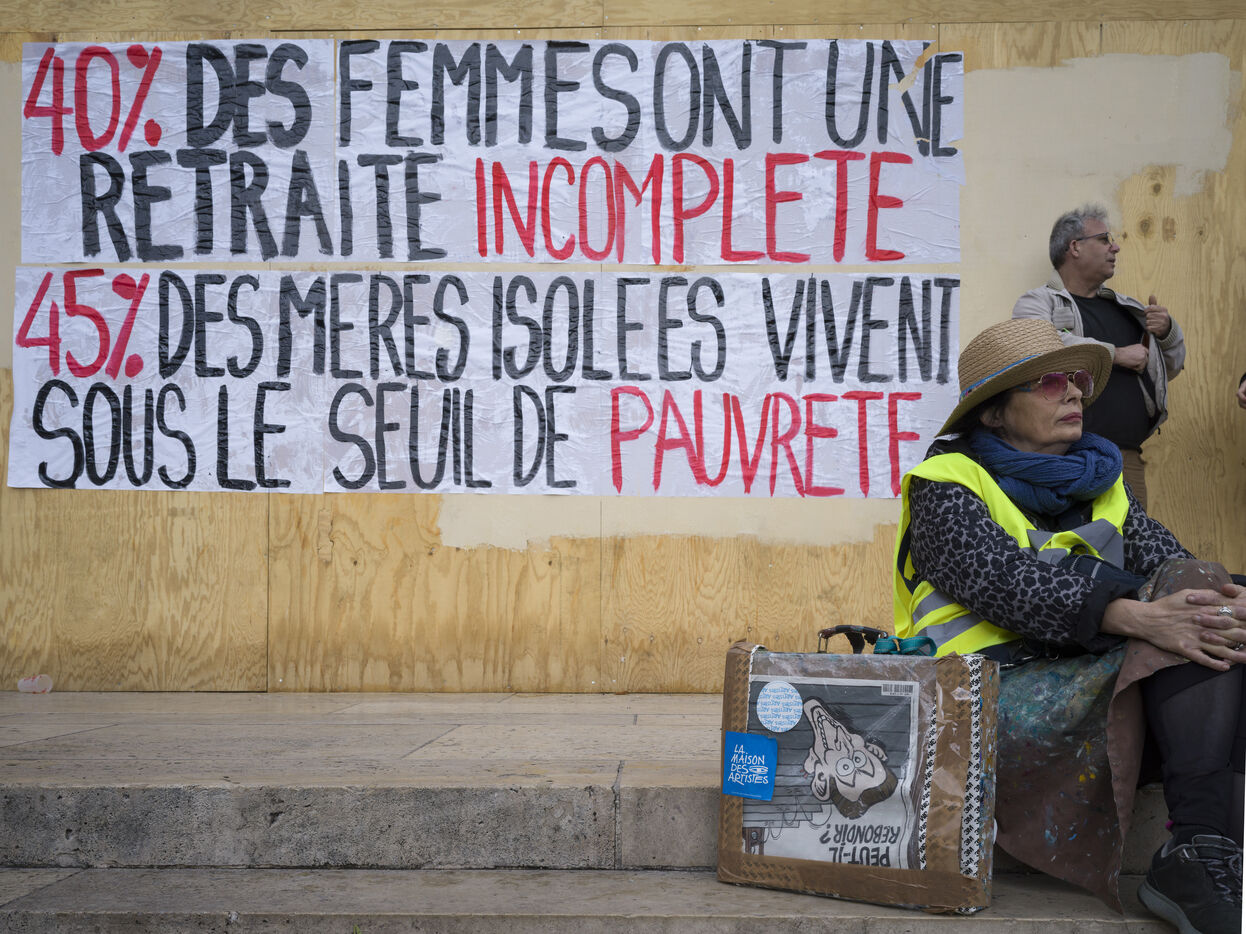 40% DES FEMMES ONT UNE
RETRAITE INCOMPLETE
45% DES MERES ISOLEES VIVENT
SOUS LE SEUIL DE PAUVRETE
LA
MAISON
DES
ARTISTES
PEUT-IL
REBONDIR?